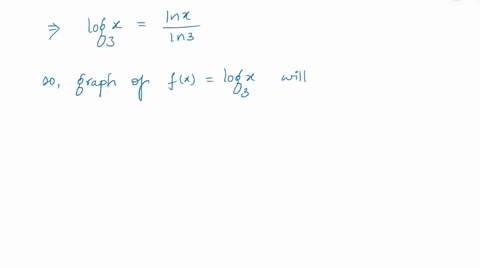 ⇒ log₃ x = ln x / ln 3
so, graph of f(x) = log₃ x will